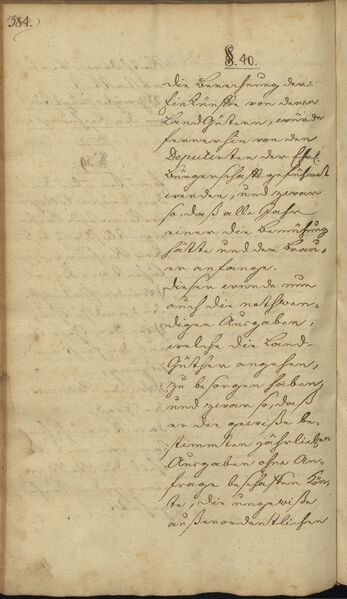 384.
§. 40.
Die Berechnung der
Einkünffte von denen
Land Güttern, würde
fernerhin von den
Deputirten der Ehrl.
Bürgerschafft geführet
werden, und zwar
so, daß alle Jahr
einer die Bemühung
hätte und der Brau-
er anfange.
Dieser würde nun
auch die nothwen-
digen Ausgaben,
welche die Land-
Güther angehen,
zu besorgen haben,
und zwar so, daß
er die gewisse be-
stimmten jährlichen
Ausgaben ohne An-
frage bestreiten kön-
te, die ungewisse
außerordentlichen